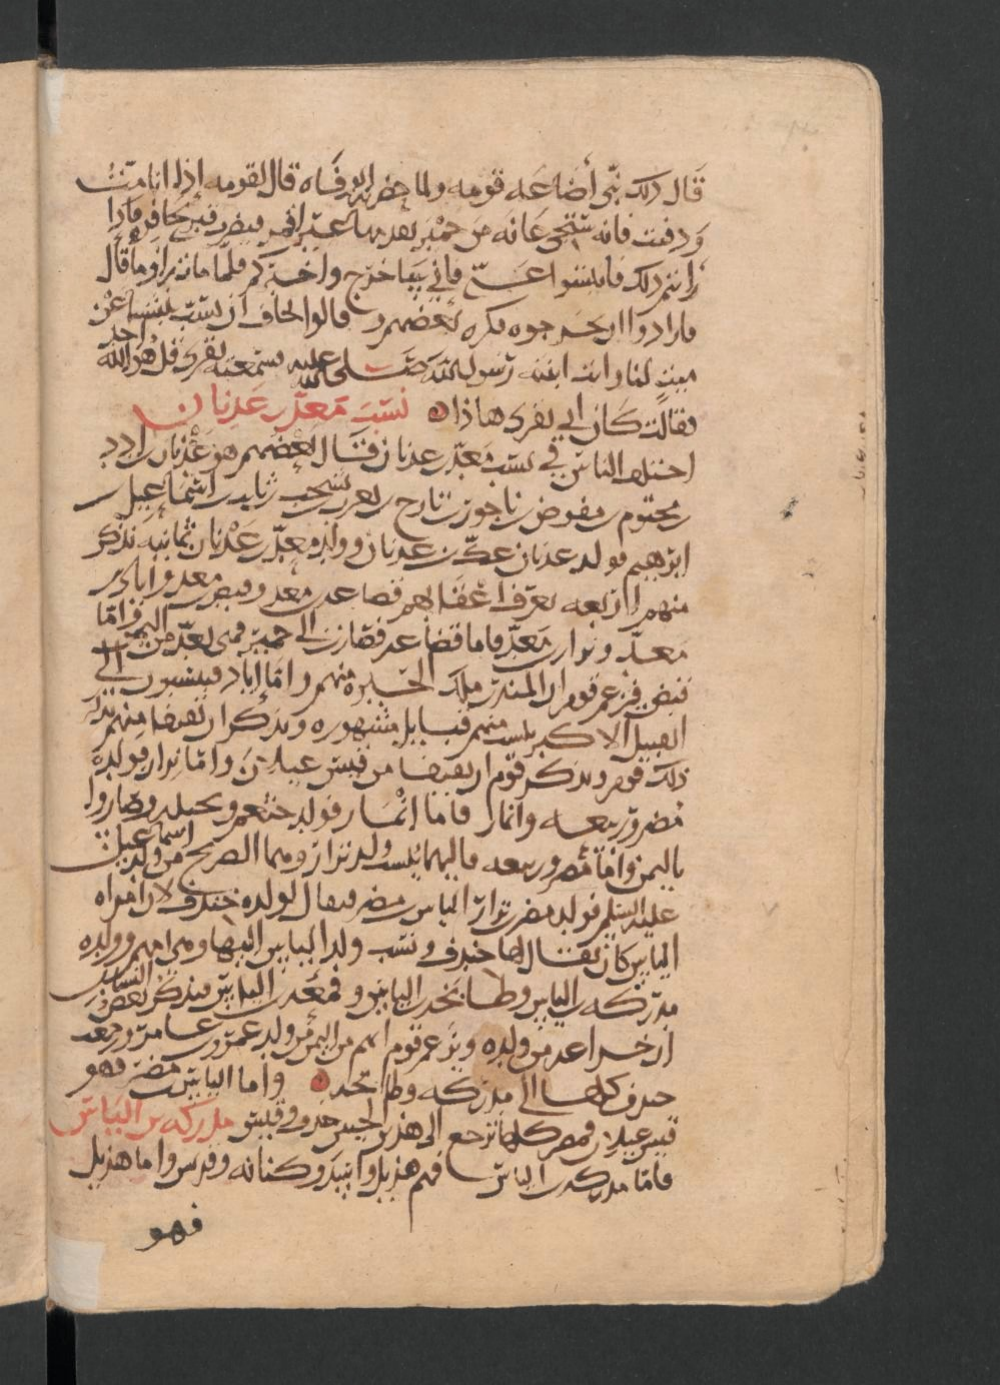 قال ذلك نبي أضاعه قومه ولما حضرته الوفاة قال لقومه إذا انا مت
ودفنت فانه ستجي عانه من حمير يقدمها عير اقمر فيضرب قبري بحافره فاذا
رايتم ذلك فانبشوا عني فاني ساخرج واخبركم فلما مات راوا ما قال
فارادوا ان يخرجوه فكره بعضهم وقالوا نخاف ان نسب بنبشنا عن
ميت لنا واتت ابنته رسول الله صلى الله عليه فسمعته يقرى قل هو الله احد
فقالت كان ابي يقرى هاذا ه نسب معد بن عدنان
اختلف الناس في نسب معد بن عدنان فقال بعضهم هو عدنان بن ادد
بن يحثوم بن مقوم بن ناحور بن تارح بن يعرب بن يشجب بن ثابت بن اسماعيل بن
ابرهيم فولد عدنان عك بن عدنان وولد معد بن عدنان ثمانية نذكر
منهم اربعه تعرف اعقابهم قضاعه بن معد وقنص بن معد واياد بن
معد ونزار بن معد فاما قضاعه فصارت الى حمير فهي تعد من اليمن واما
قنص فزعم قوم ان المنذر ملك الحيره منهم واما اياد فينسبون الي
القبيل الاكبر ليست منهم قبايل مشهوره ويذكر ان ثقيفا منهم
ذلك قوم ويذكر قوم ان ثقيفا من قيس عيلان واما نزار فولده
مضر وربيعه وانمار فاما انمار فولد خثعم وبجيله وصاروا
باليمن واما مضر وربيعه فاليهما ينسب ولد نزار وهما الصريح من ولد اسماعيل
عليه السلم فولد مضر بن نزار الياس بن مضر فيقال لولده خندف لان امراه
الياس كان يقال لها خندف ونسب ولد الياس اليها وهي امهم وولده
مدركه بن الياس وطابخه بن الياس وقمعه بن الياس فيذكر بعض النساب
ان خزاعه من ولده ويزعم قوم انهم من اليمن من ولد عمرو بن عامر ورجعت
خندف كلها الى مدركه وطابخه ه واما الياس بن مضر فهو
قيس عيلان فمضر كلها ترجع الى هذين الحيين خندف وقيس مدركه بن الياس
فاما مدركه بن الياس فهم هذيل واسد وكنانه و واما هذيل
فهو